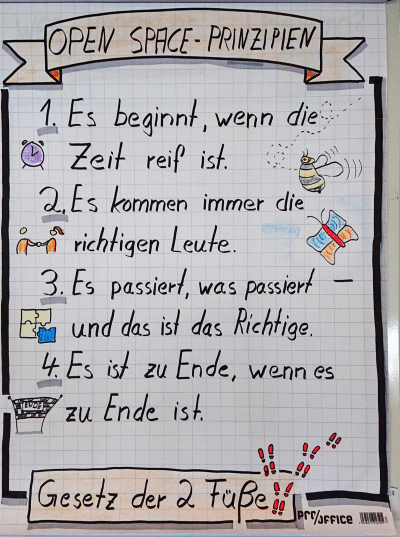 OPEN SPACE-PRINZIPIEN
1. Es beginnt, wenn die
Zeit reif ist.
2. Es kommen immer die
richtigen Leute.
3. Es passiert, was passiert –
und das ist das Richtige.
4. Es ist zu Ende, wenn es
zu Ende ist.
Gesetz der 2 Füße
PRO/OFFICE